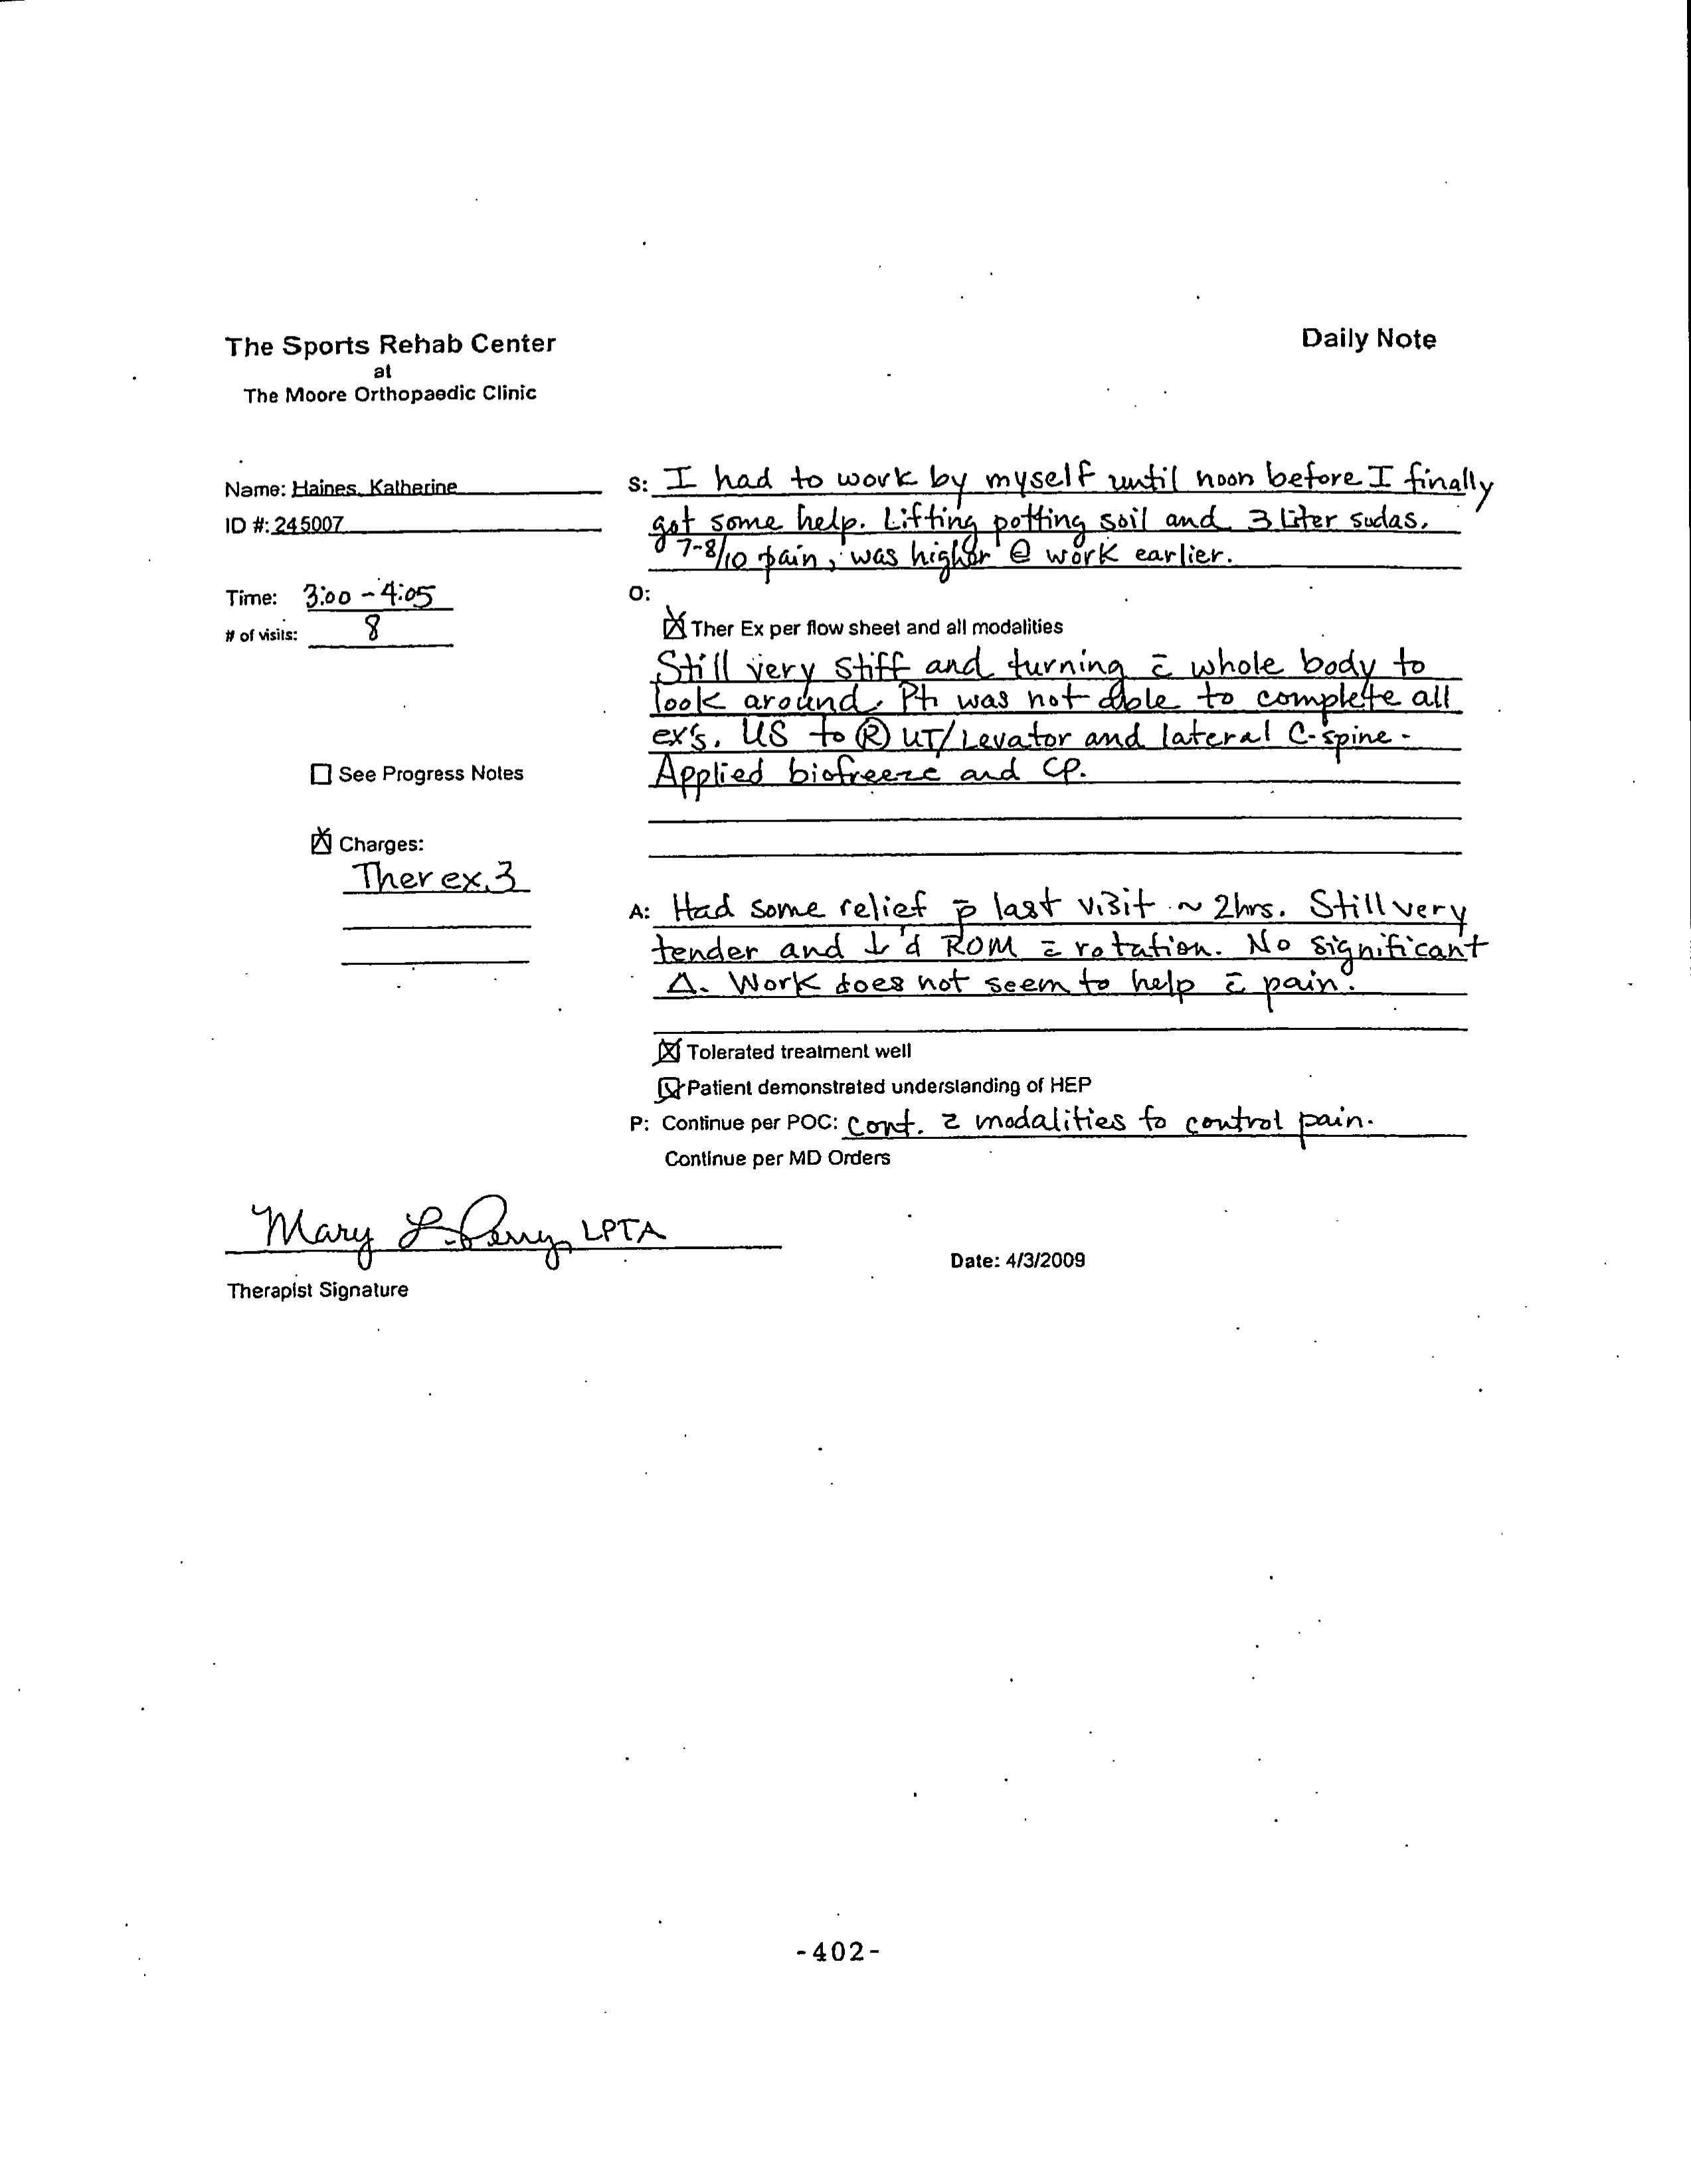 The Sports Rehab Center
at
The Moore Orthopaedic Clinic
Daily Note
Name: Haines, Katherine
ID #: 245007
Time: 3:00 - 4:05
# of visits: 8
☐ See Progress Notes
☒ Charges:
Ther ex, 3
S: I had to work by myself until noon before I finally
got some help. Lifting potting soil and 3 Liter sodas.
7-8/10 pain, was higher @ work earlier.
O:
☒ Ther Ex per flow sheet and all modalities
Still very stiff and turning c̄ whole body to
look around. Pt. was not able to complete all
ex's. US to Ⓡ UT/Levator and lateral C-spine -
Applied biofreeze and CP.
A: Had some relief p̄ last visit ~ 2hrs. Still very
tender and ↓'d ROM c̄ rotation. No significant
Δ. Work does not seem to help c̄ pain.
☒ Tolerated treatment well
☒ Patient demonstrated understanding of HEP
P: Continue per POC: Cont. c̄ modalities to control pain.
Continue per MD Orders
Mary L. Perry, LPTA
Therapist Signature
Date: 4/3/2009
-402-